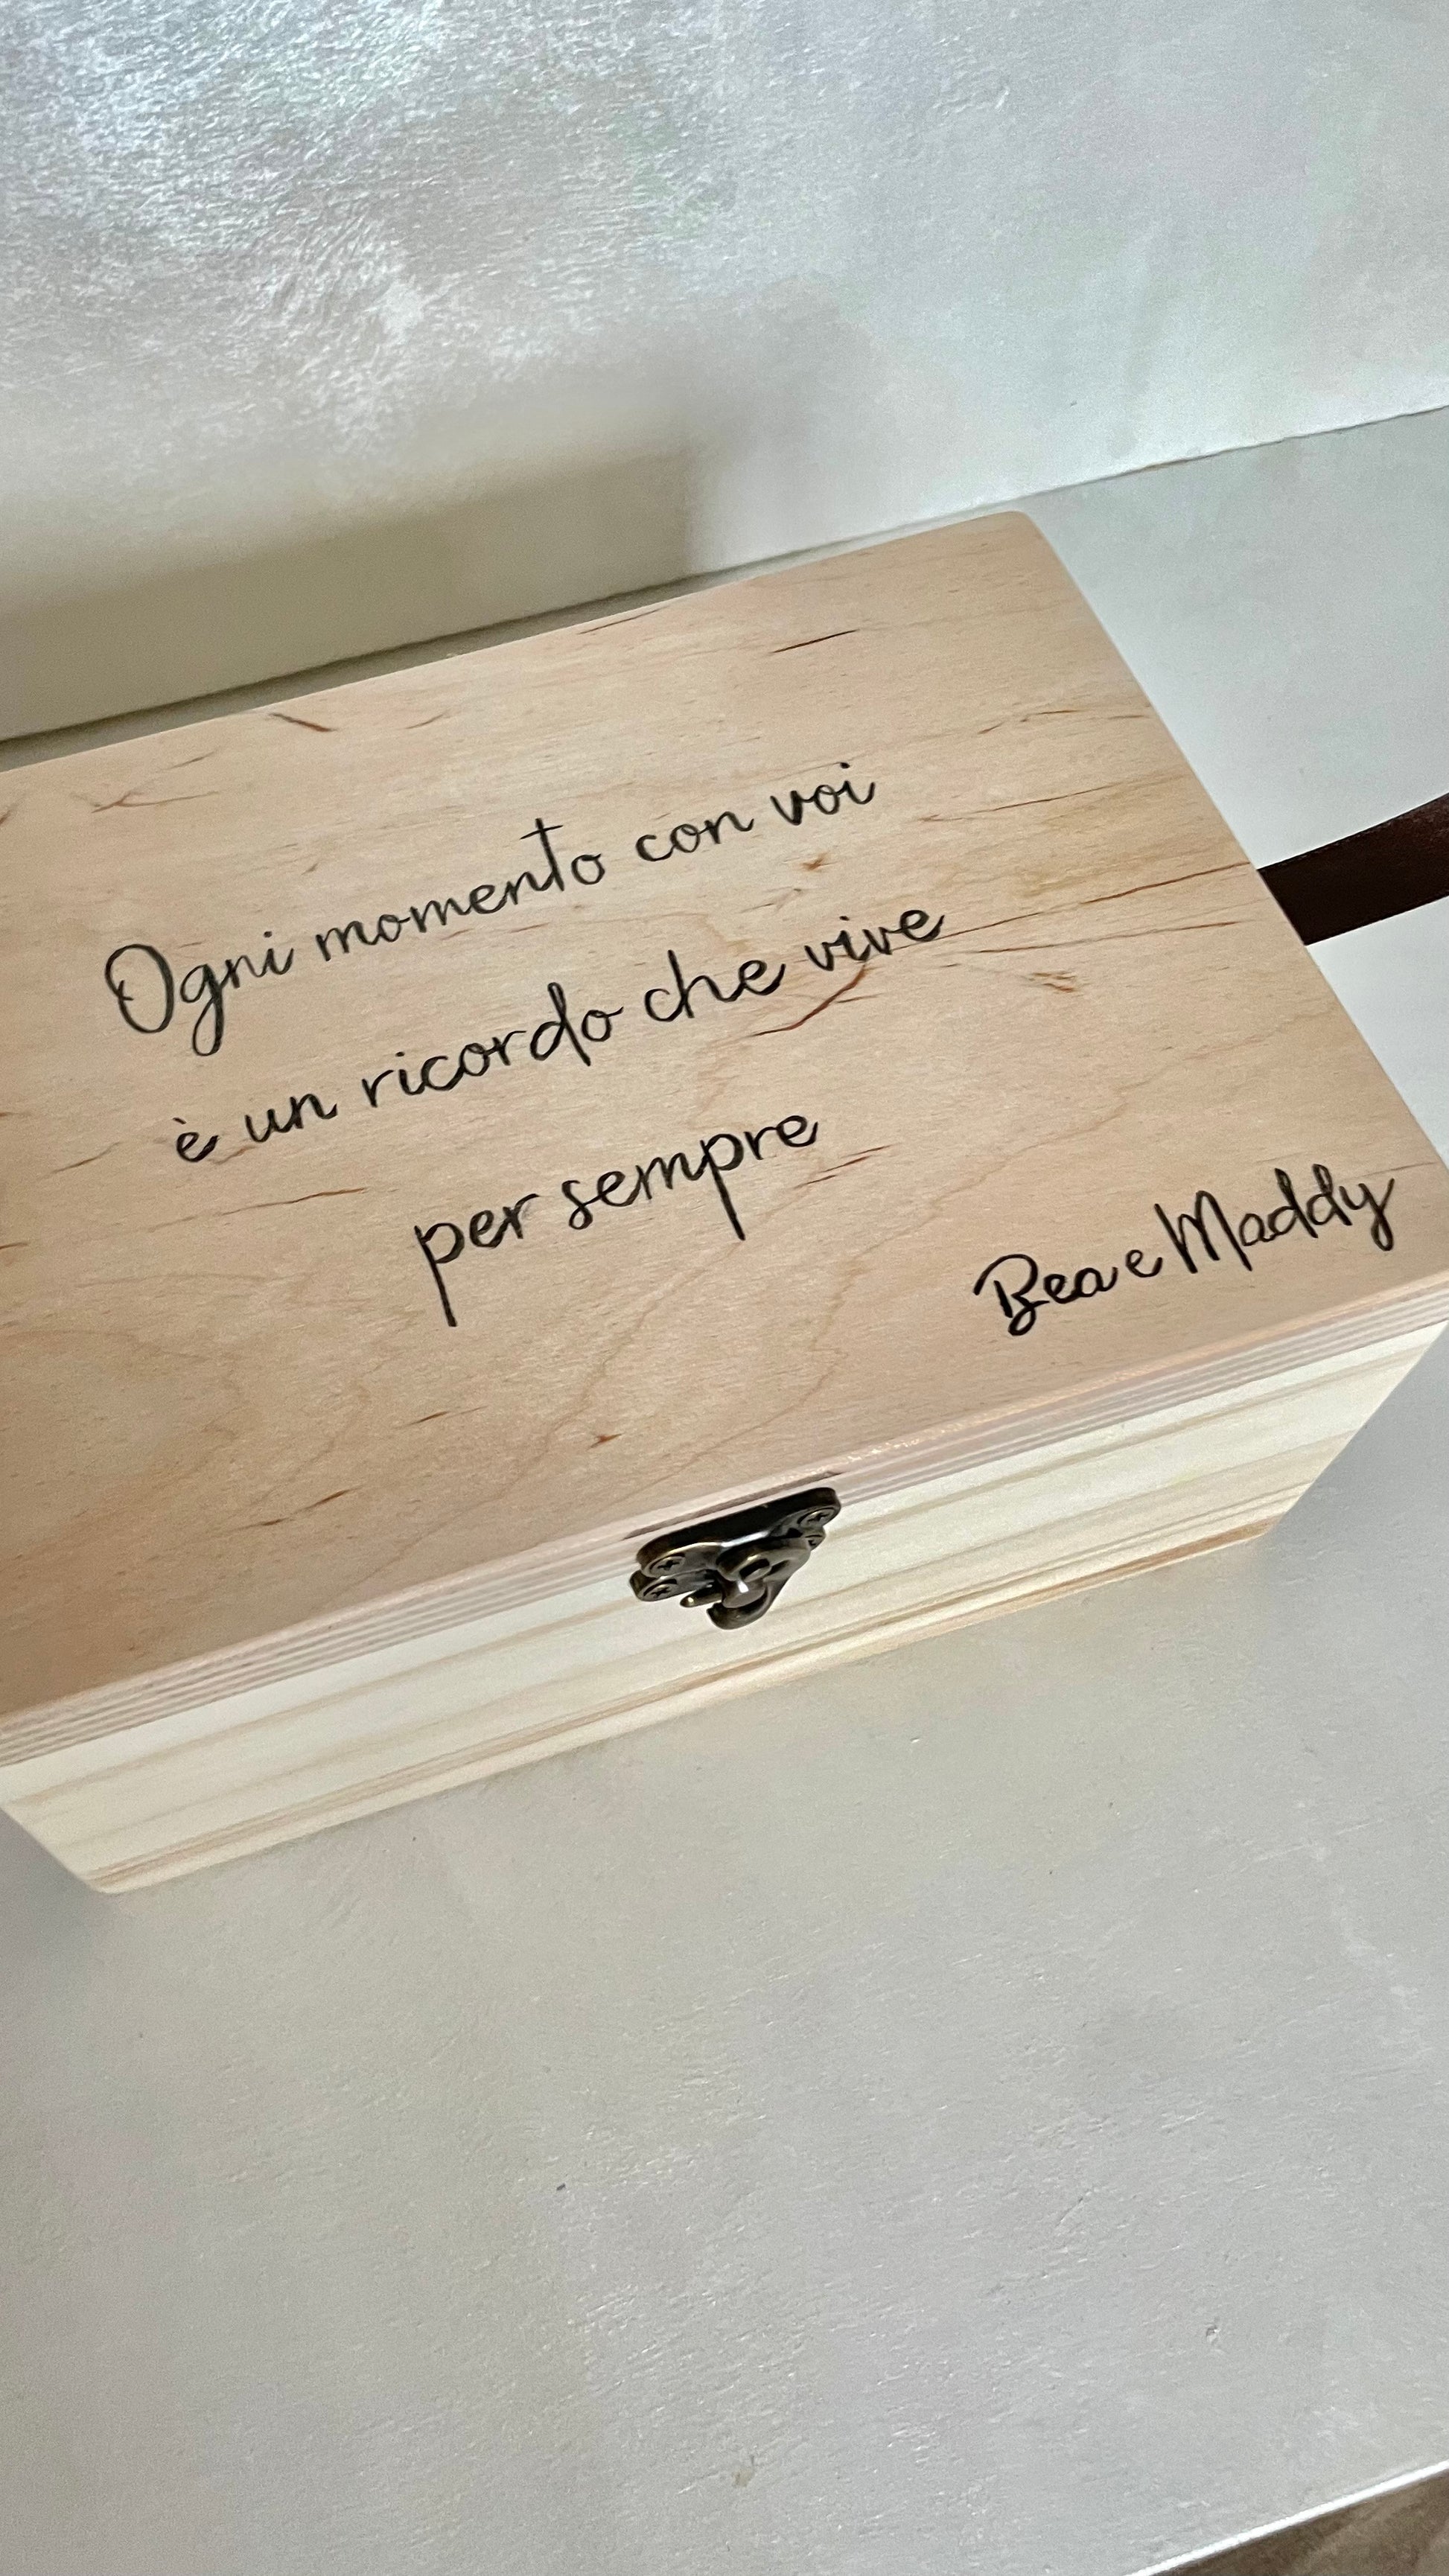 Ogni momento con voi
è un ricordo che vive
per sempre
Bea e Maddy